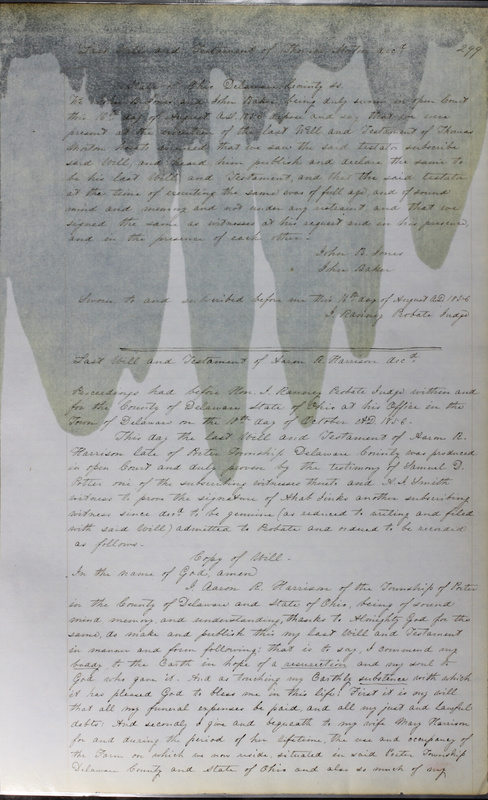 Last Will and Testament of Thomas Morton decd. 299
State of Ohio Delaware County ss.
We John B. Jones and John Baker being duly sworn in open Court
this 18th day of August A.D. 1856 depose and say that we were
present at the execution of the last Will and Testament of Thomas
Morton hereto annexed that we saw the said testator subscribe
said Will, and heard him publish and declare the same to
be his last Will and Testament, and that the said testator
at the time of executing the same was of full age and of sound
mind and memory and not under any restraint and that we
signed the same as witnesses at his request and in his presence,
and in the presence of each other.
John B. Jones
John Baker
Sworn to and subscribed before me this 18th day of August A.D. 1856
T. Ranney Probate Judge
Last Will and Testament of Aaron R. Harrison decd.
Proceedings had before Hon. T. Ranney Probate Judge within and
for the County of Delaware State of Ohio at his Office in the
Town of Delaware on the 10th day of October A.D. 1856.
This day the last Will and Testament of Aaron R.
Harrison late of Porter Township Delaware County was produced
in open Court and duly proven by the testimony of Samuel D.
Potter one of the subscribing witnesses thereto and A. J. Smith
witness to prove the signature of Ahab Jinks another subscribing
witness since decd. to be genuine (as reduced to writing and filed
with said Will) admitted to Probate and ordered to be recorded
as follows.
Copy of Will.
In the name of God, amen
I Aaron R. Harrison of the Township of Porter
in the County of Delaware and State of Ohio, being of sound
mind memory and understanding, thanks to Almighty God for the
same, do make and publish this my last Will and Testament
in manner and form following; that is to say, I commend my
boady to the Earth in hope of a resurection and my soul to
God who gave it. And as touching my Earthly substence with which
it has pleased God to bless me in this life. First it is my will
that all my funeral expenses be paid, and all my just and lawful
debts. And secondly I give and bequeath to my wife Mary Harrison
for and during the period of her lifetime, the use and occupancy of
the Farm on which we now reside, situated in said Porter Township
Delaware County and State of Ohio and also so much of my